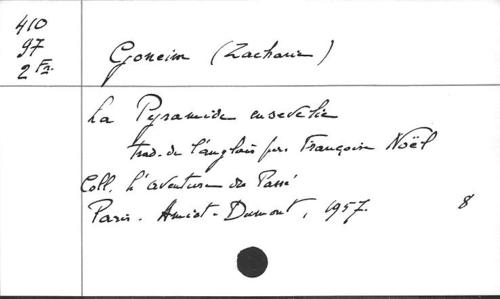 410
97
2 Fz.
Goneim (Zacharie)
La Pyramide ensevelie
trad. de l'anglais par Françoise Noël
Coll. L'aventure du Passé
Paris. Amiot-Dumont, 1957. 8